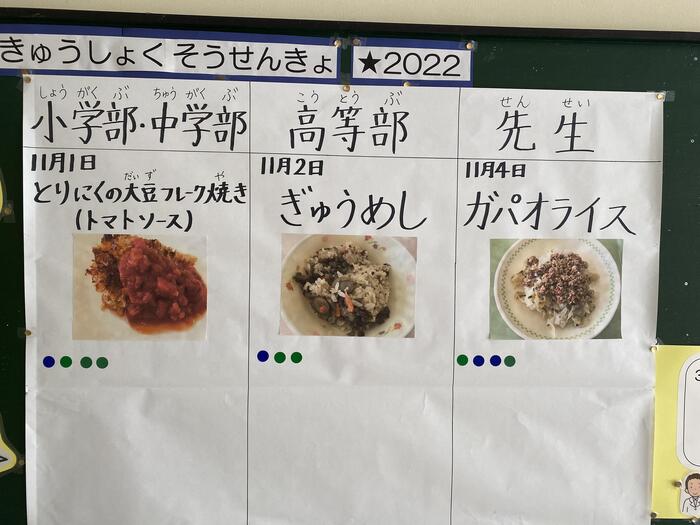 きゅうしょく そうせんきょ
★2022
しょう がく ぶ ちゅう がく ぶ
小学部・中学部
こう とう ぶ
高等部
せん せい
先生
11月1日
だい ず や
とりにくの大豆フレーク焼き
(トマトソース)
11月2日
ぎゅうめし
11月4日
ガパオライス